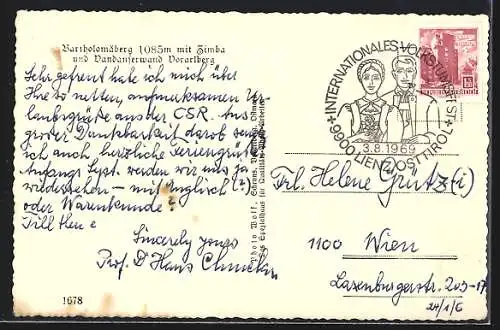 Bartholomäberg 1085m mit Zimba
und Vandanserwand Vorarlberg
Sehr gefreut habe ich mich über
Ihre so netten, aufmerksamen Ur-
laubsgrüße aus der CSR. Aus
großer Dankbarkeit darob sende
ich auch herzliche Feriengrüße
Anfangs Sept. werden wir uns ja
wiedersehen – mit Englisch (?)
oder Warenkunde?
Till then
Sincerely yours
Prof. Dr Hans
1678
Photo Wolf, Schruns,
INTERNATIONALES VOLKSTUMSFEST
9900 LIENZ OSTTIROL
3.8.1969
REPUBLIK ÖSTERREICH
Frl. Helene Grütz(i)
1100 Wien
Laxenburgerstr. 203-17
24/1/6